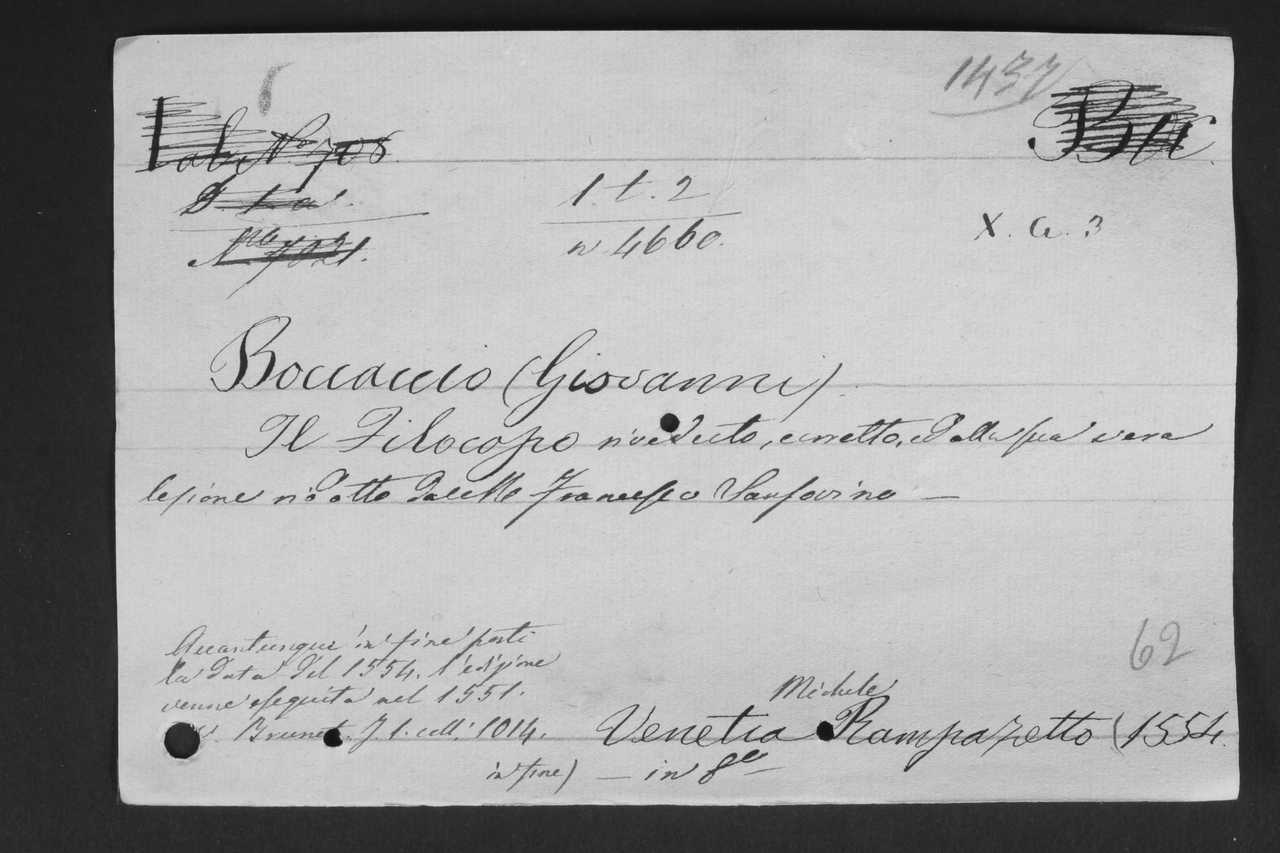 1437
Lab. No 708.
Buc.
D. t. a.
1. t. 2
No 7021.
n 4660.
X. a. 3
Boccaccio (Giovanni)
Il Filocopo riveduto, corretto, ed alla sua vera
lezione ridotto da Francesco Sansovino —
Quantunque in fine porti
la data del 1554. l'edizione
venne eseguita nel 1551.
v. Brunet. T. 1. coll. 1014.
62
Michele
Venetia Rampazetto (1554.
in fine) — in 8o